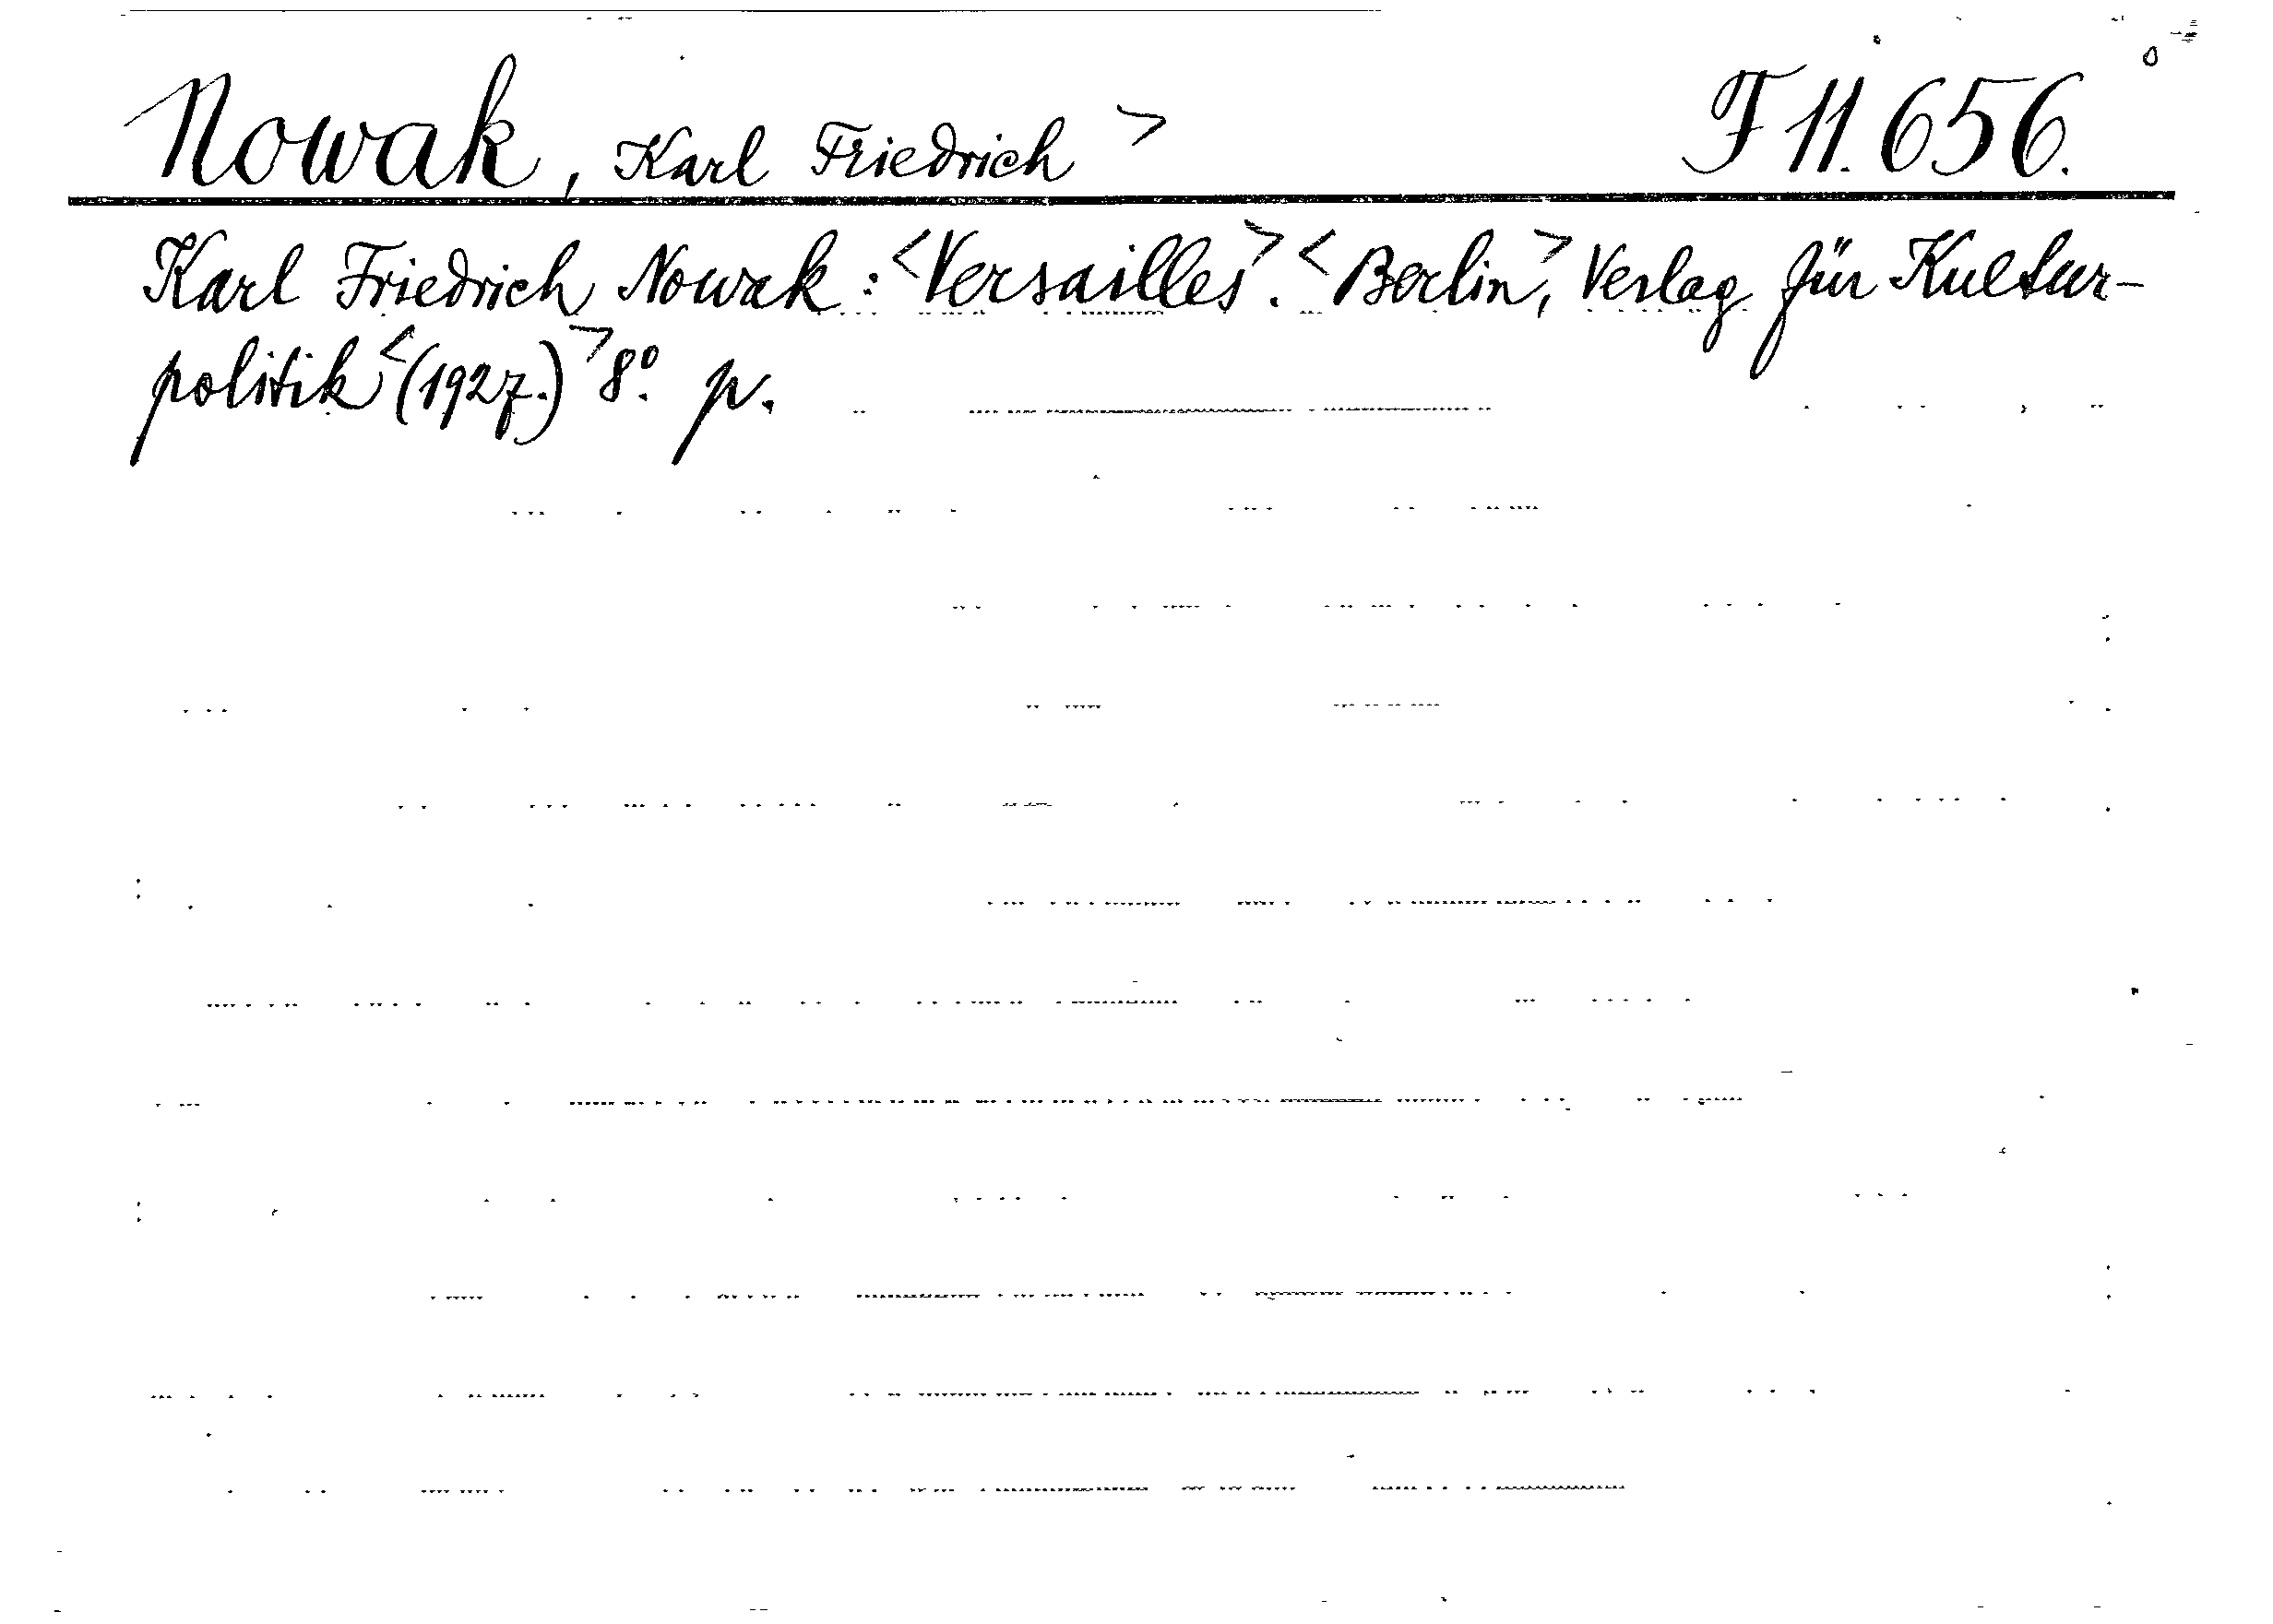 Nowak, Karl Friedrich> F 11.656.
Karl Friedrich Nowak: <Versailles>. <Berlin>, Verlag für Kultur-
politik <(1927.)> 8º. p.